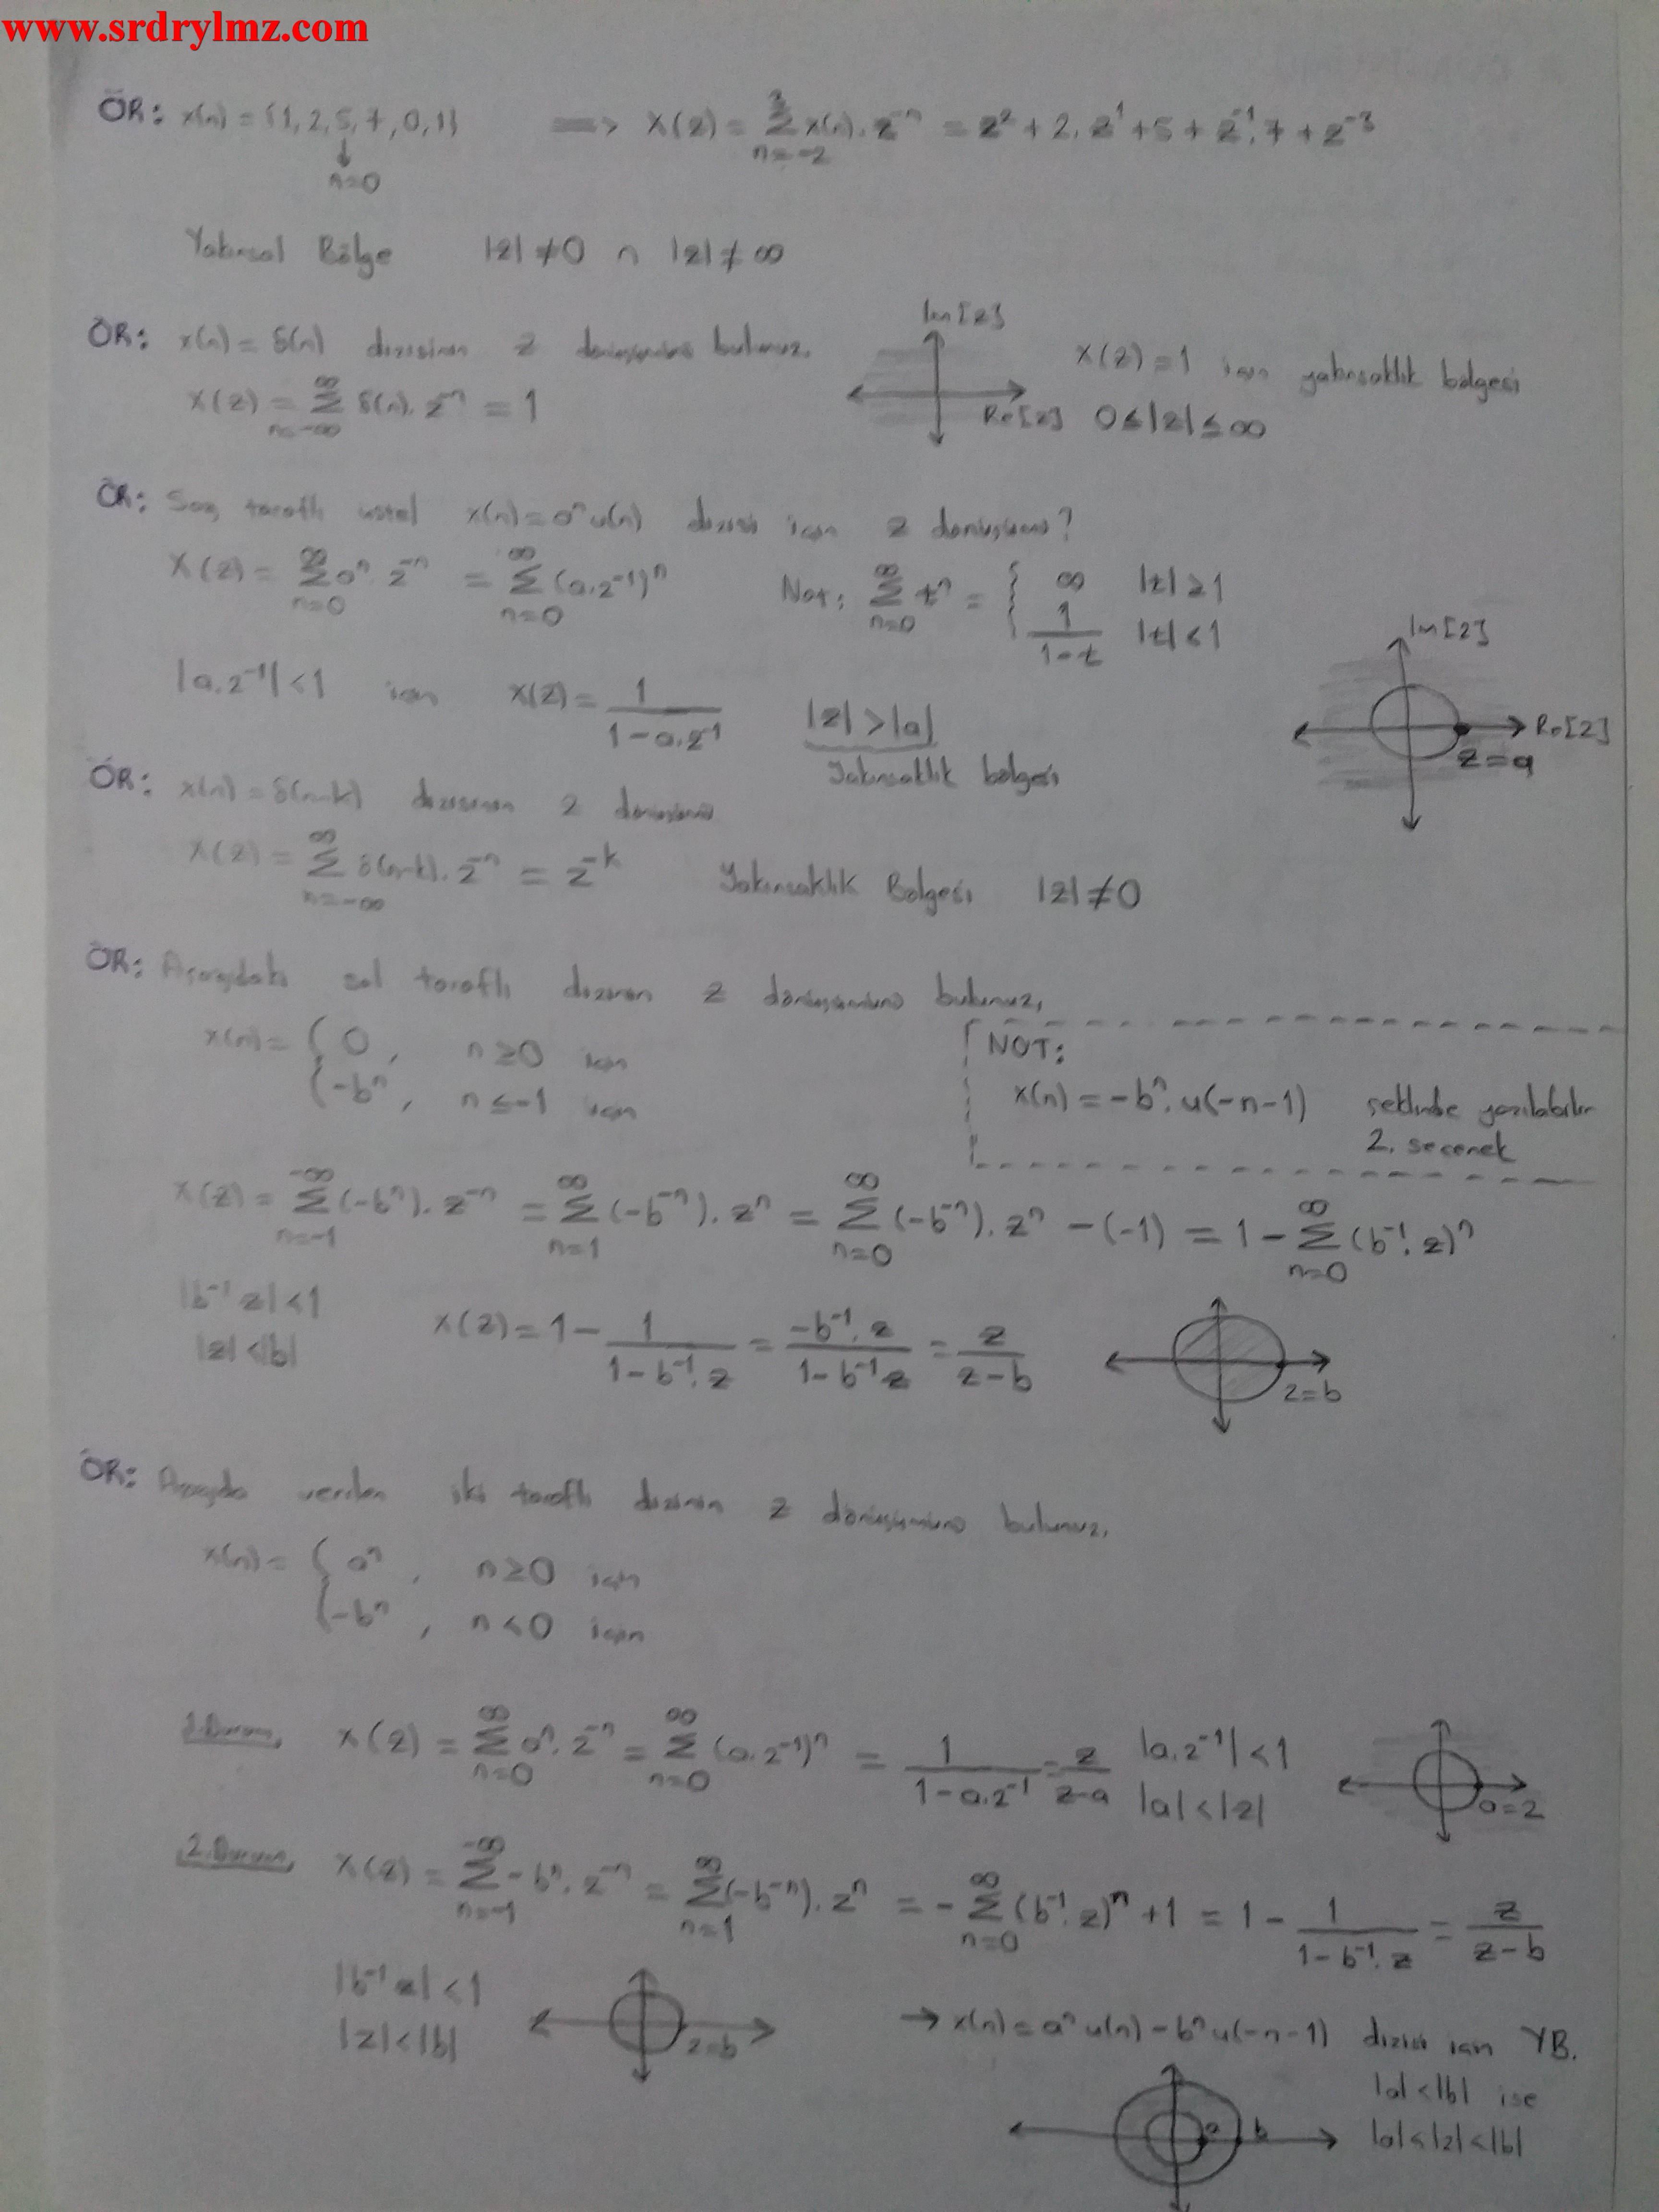 www.srdrylmz.com
ÖR: x(n) = {1, 2, 5, 7, 0, 1} => X(z) = Σ_{n=-2}^{3} x(n). z^-n = z^2 + 2. z^1 + 5 + z^-1. 7 + z^-3
n=0
Yakınsal Bölge |z| ≠ 0 ∩ |z| ≠ ∞
ÖR: x(n) = δ(n) dizisinin z dönüşümünü bulunuz.
X(z) = Σ_{n=-∞}^{∞} δ(n). z^-n = 1
Im[z]
Re[z]
X(z) = 1 için yakınsaklık bölgesi
0 ≤ |z| ≤ ∞
ÖR: Sağ taraflı üstel x(n) = a^n u(n) dizisi için z dönüşümü?
X(z) = Σ_{n=0}^{∞} a^n. z^-n = Σ_{n=0}^{∞} (a.z^-1)^n Not: Σ_{n=0}^{∞} t^n = { ∞ |t| ≥ 1
1/(1-t) |t| < 1
|a.z^-1| < 1 için X(z) = 1/(1-a.z^-1) |z| > |a|
Yakınsaklık bölgesi
Im[z]
Re[z]
z=a
ÖR: x(n) = δ(n-k) dizisinin z dönüşümü
X(z) = Σ_{n=-∞}^{∞} δ(n-k). z^-n = z^-k Yakınsaklık Bölgesi |z| ≠ 0
ÖR: Aşağıdaki sol taraflı dizinin z dönüşümünü bulunuz.
x(n) = { 0, n ≥ 0 için
-b^n, n ≤ -1 için
NOT:
x(n) = -b^n. u(-n-1) şeklinde yazılabilir
2. seçenek
X(z) = Σ_{n=-1}^{-∞} (-b^n). z^-n = Σ_{n=1}^{∞} (-b^-n). z^n = Σ_{n=0}^{∞} (-b^-n). z^n - (-1) = 1 - Σ_{n=0}^{∞} (b^-1. z)^n
|b^-1 z| < 1
|z| < |b|
X(z) = 1 - 1/(1-b^-1. z) = -b^-1. z/(1-b^-1 z) = z/(z-b)
z=b
ÖR: Aşağıda verilen iki taraflı dizinin z dönüşümünü bulunuz.
x(n) = { a^n, n ≥ 0 için
-b^n, n < 0 için
1. Durum, X(z) = Σ_{n=0}^{∞} a^n. z^-n = Σ_{n=0}^{∞} (a.z^-1)^n = 1/(1-a.z^-1) = z/(z-a) |a.z^-1| < 1
|a| < |z|
a=z
2. Durum, X(z) = Σ_{n=-1}^{-∞} -b^n. z^-n = Σ_{n=1}^{∞} (-b^-n). z^n = - Σ_{n=0}^{∞} (b^-1. z)^n + 1 = 1 - 1/(1-b^-1. z) = z/(z-b)
|b^-1 z| < 1
|z| < |b|
z=b
→ x(n) = a^n u(n) - b^n u(-n-1) dizisi için YB.
|a| < |b| ise
|a| < |z| < |b|
a b